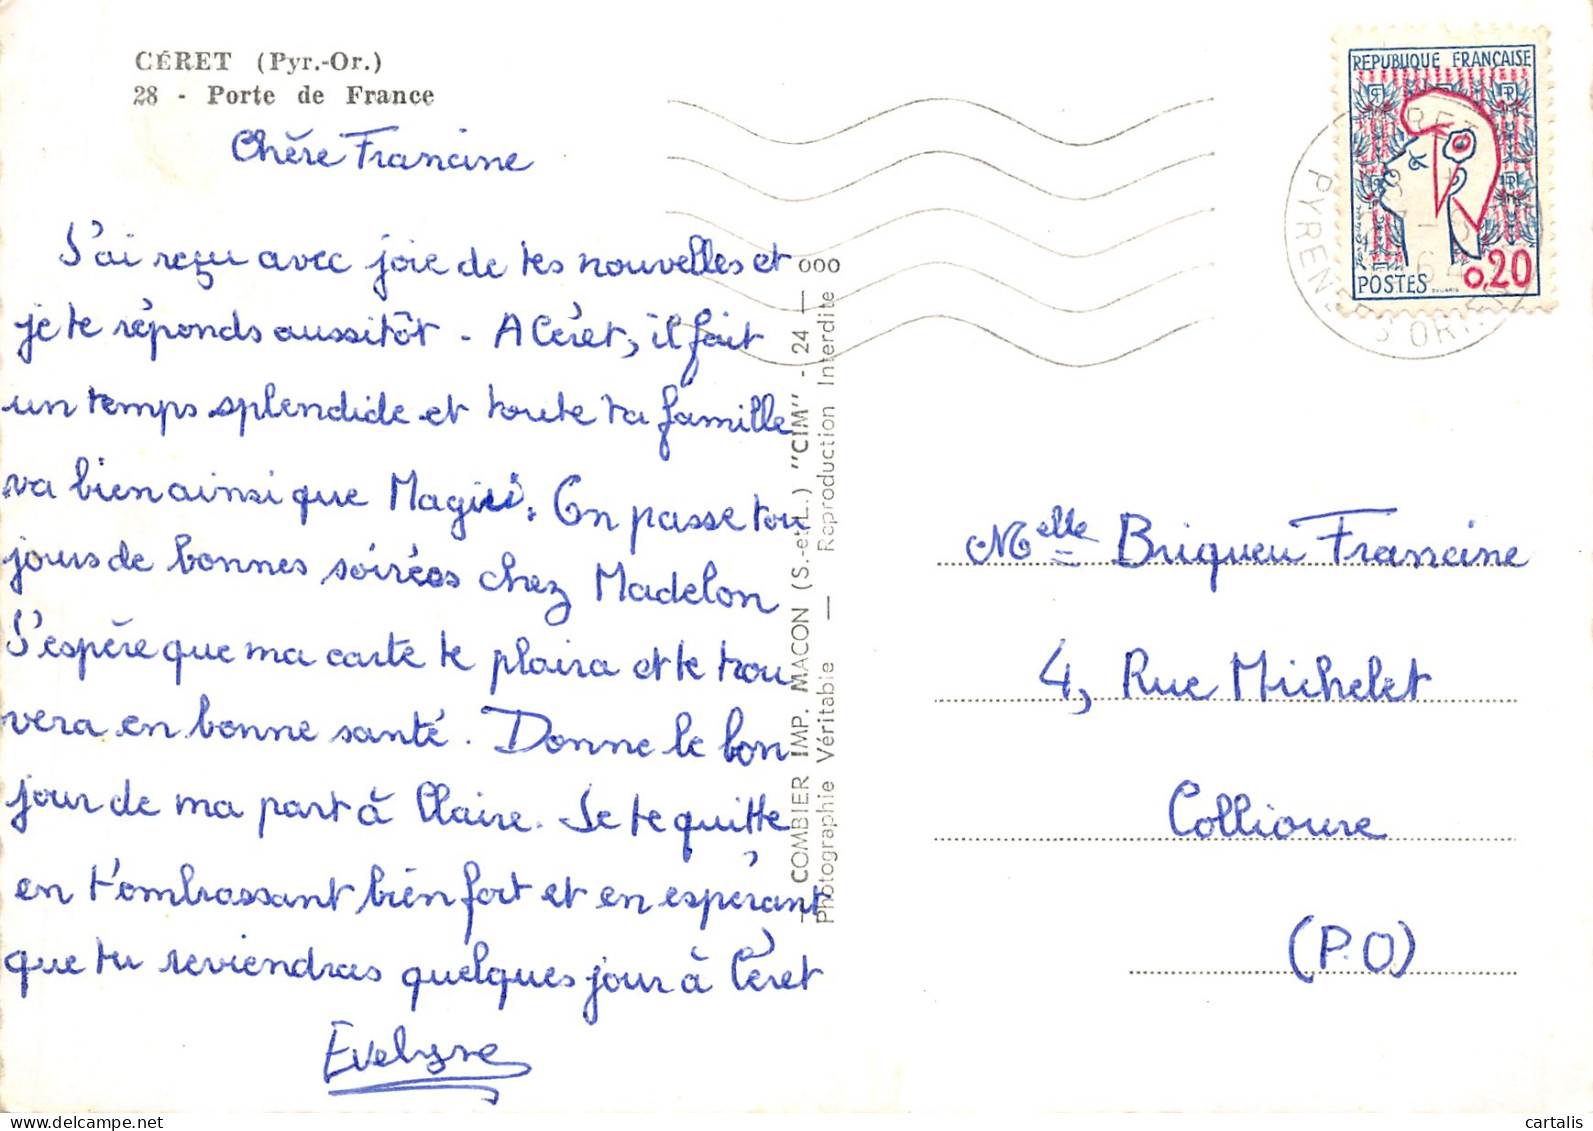 CÉRET (Pyr.-Or.)
28 - Porte de France
Chère Francine
J'ai reçu avec joie de tes nouvelles et
je te réponds aussitôt - A Céret, il fait
un temps splendide et toute ta famille
va bien ainsi que Magiti. On passe tou
jours de bonnes soirées chez Madelon
J'espère que ma carte te plaira et te trou
vera en bonne santé. Donne le bon
jour de ma part à Claire. Je te quitte
en t'embrassant bien fort et en espérant
que tu reviendras quelques jour à Céret
Evelyne
COMBIER IMP. MACON (S.-et-L.) "CIM" - 24 — 000
Photographie Véritable — Reproduction Interdite
REPUBLIQUE FRANÇAISE
POSTES
0,20
PYRENEES ORI
64
Melle Briqueu Francine
4, Rue Michelet
Collioure
(P.O)
cartalis